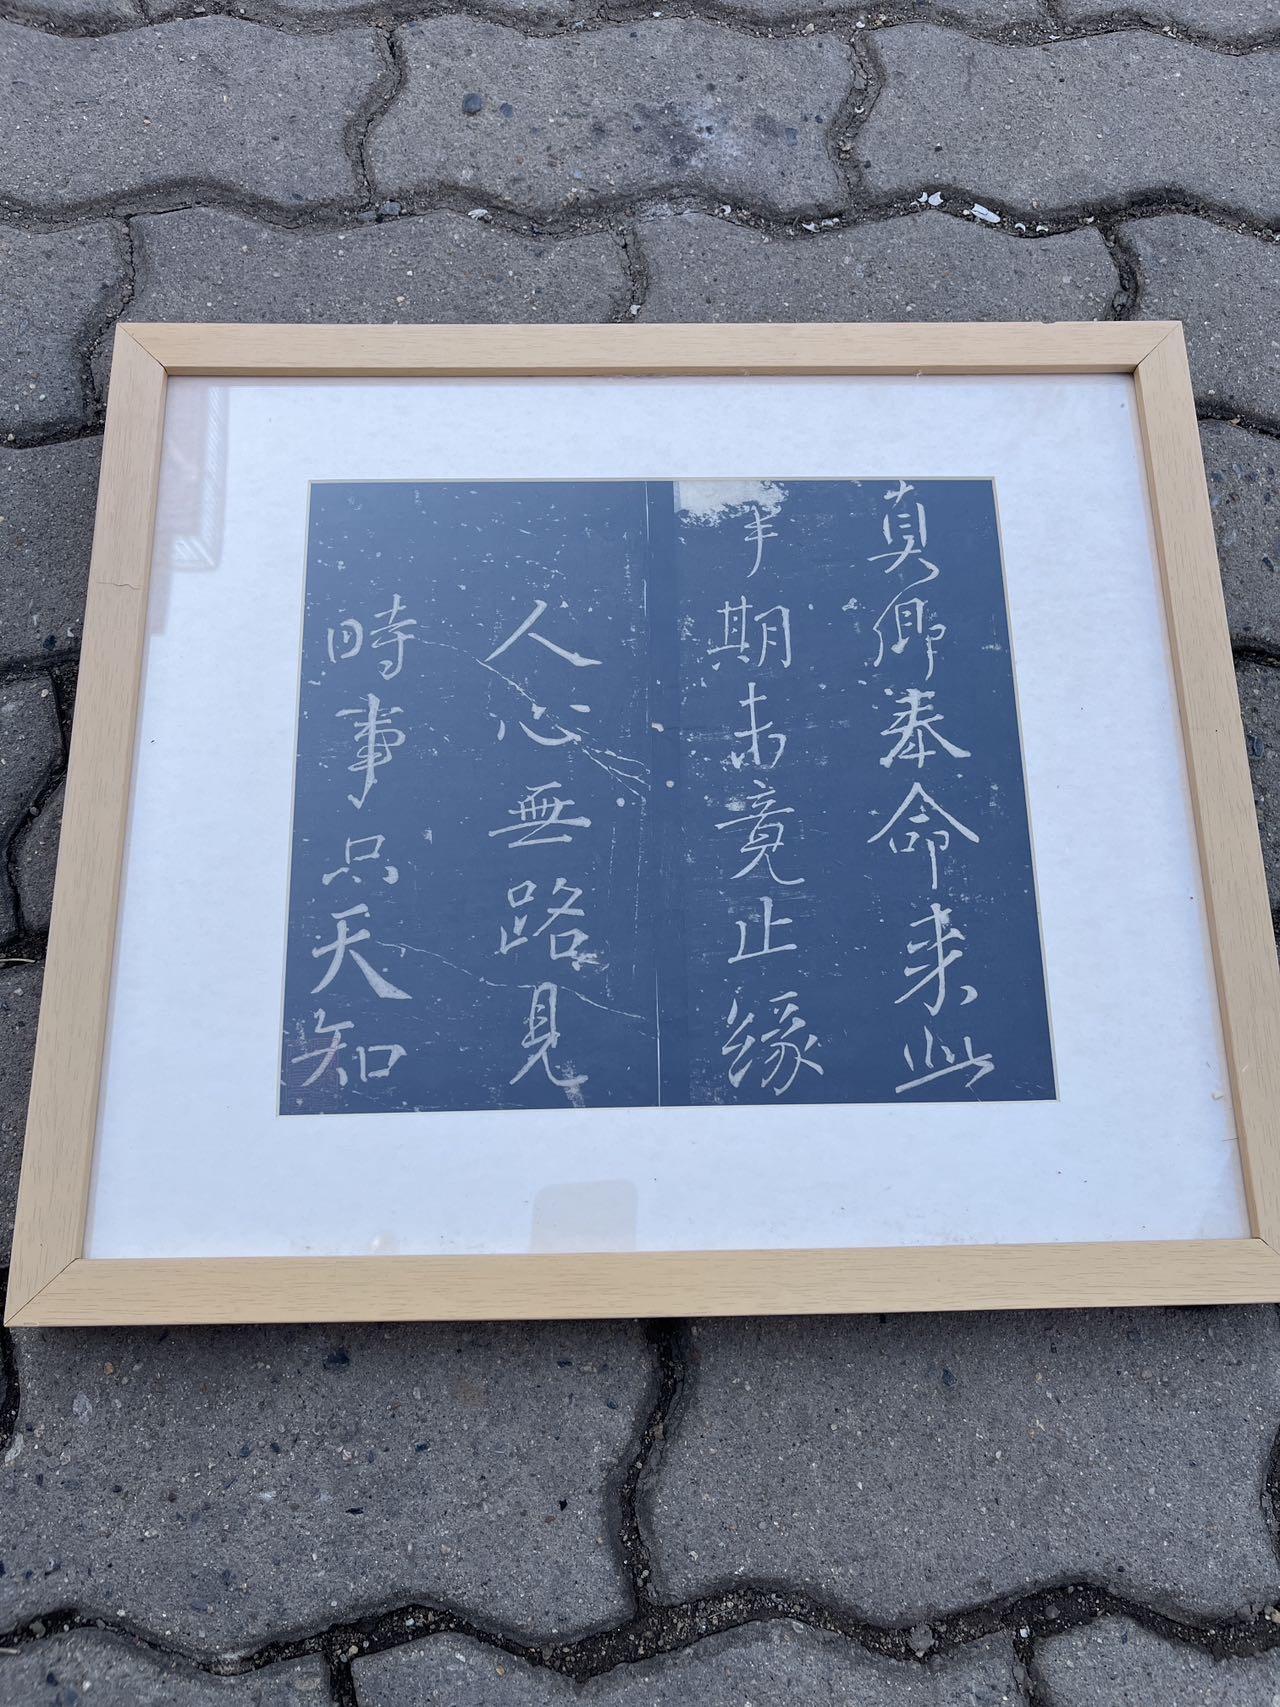 真卿奉命来此
期未竟止緣
人心無路見
時事只天知